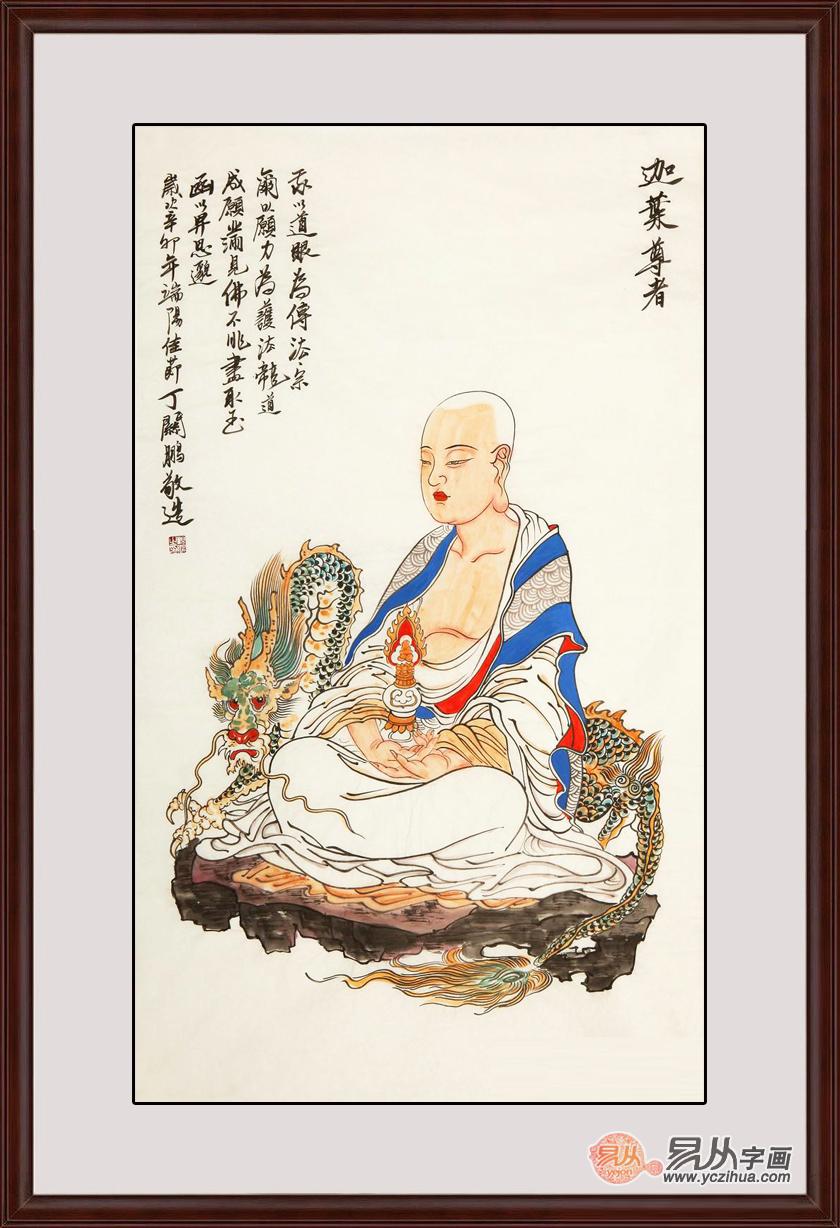 迦葉尊者
我以道眼為傳法宗
爾以願力為護法龍道
成願滿見佛不
盡取玉
函以昇思邈
歲次辛卯年端陽佳節丁闢鵬敬造
易从
yejon
易从字画
www.yczihua.com